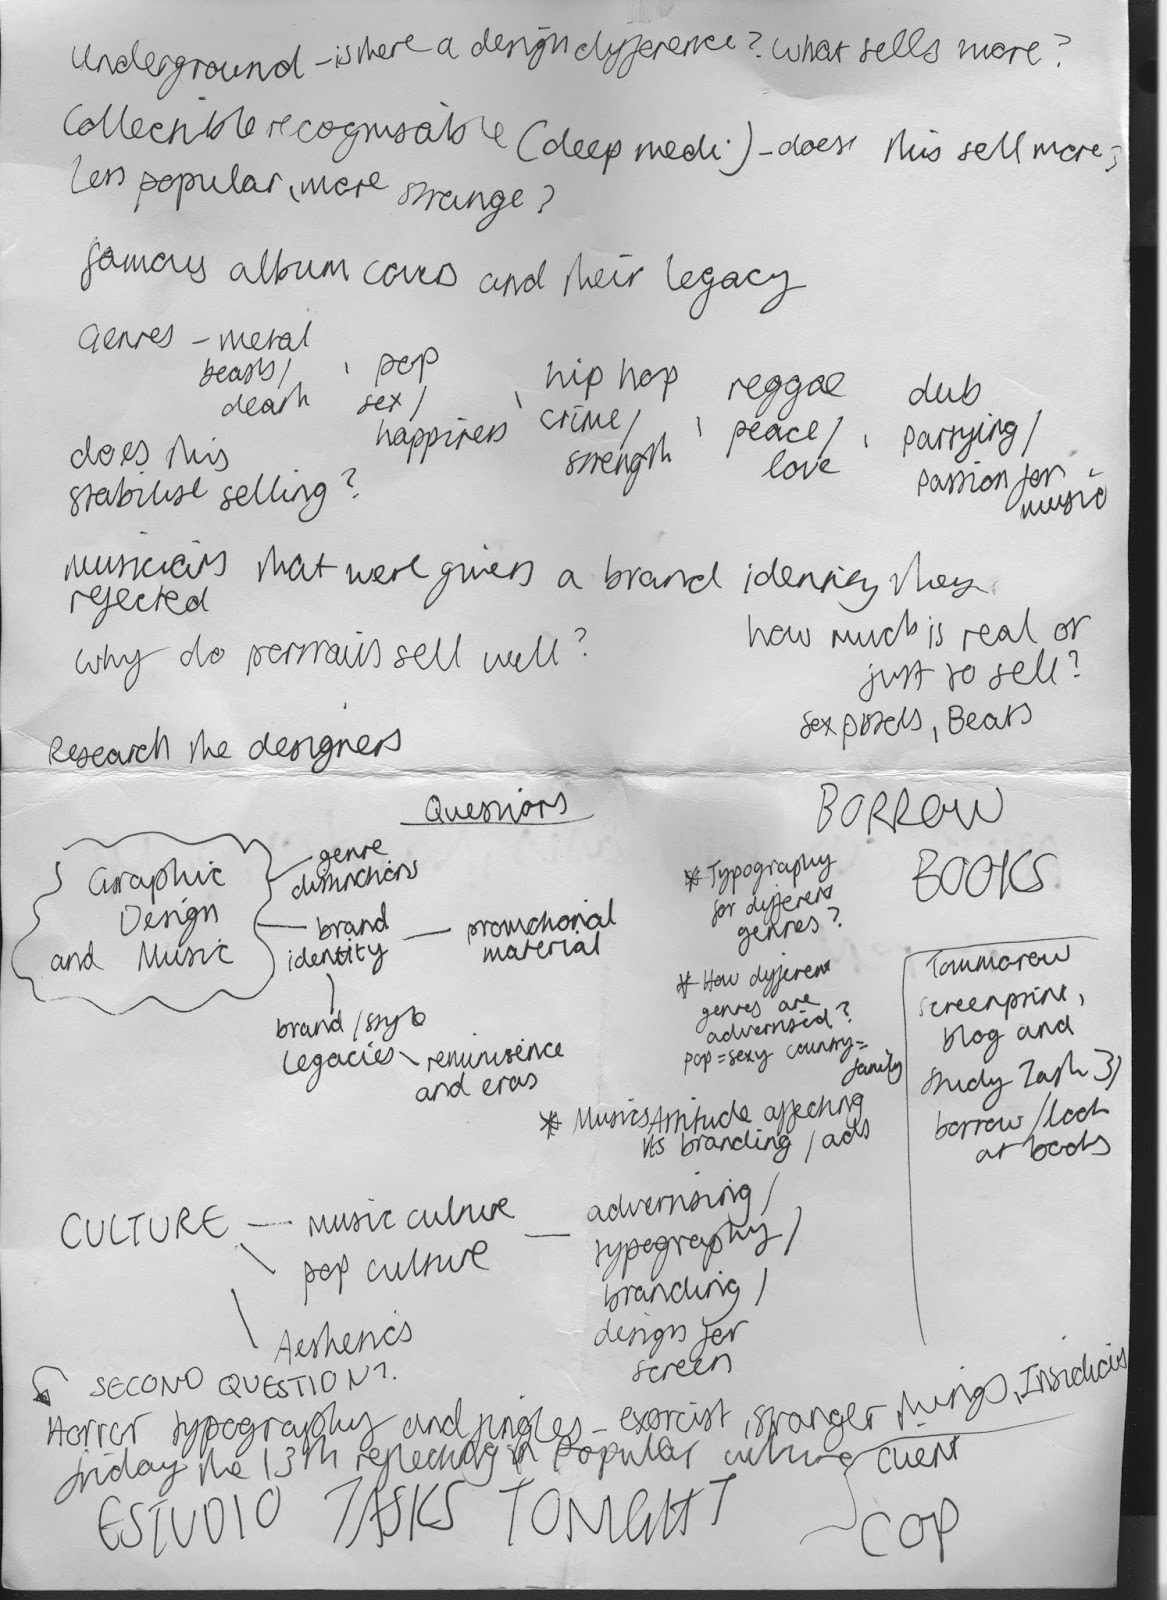 Underground - is there a design difference? What sells more?
Collectible recognisable (deep medi) - does this sell more?
Less popular, more strange?
famous album covers and their legacy
Genres - metal
beasts/
death
, pop
sex/
happiness
, hip hop
crime/
strength
, reggae
peace/
love
, dub
partying/
passion for
music
does this
stabilise selling?
musicians that were given a brand identity they
rejected
why do portraits sell well?
how much is real or
just to sell?
sex pistols, Beats
Research the designers
Questions
Graphic
Design
and Music
genre
distinctions
brand
identity
promotional
material
brand/style
legacies
reminisence
and eras
* Typography
for different
genres?
* How different
genres are
advertised?
pop = sexy country =
family
* Musics Attitude affecting
its branding / ads
BORROW
BOOKS
Tommorow
screenprint,
blog and
study task 3)
borrow/look
at books
CULTURE - music culture
pop culture
Aesthetics
advertising/
typography/
branding/
design for
screen
SECOND QUESTION?
Horror typography and jingles - exorcist, stranger things, Insidious
friday the 13th reflecting in popular culture
ESTUDIO TASKS TONIGHT
client
COP